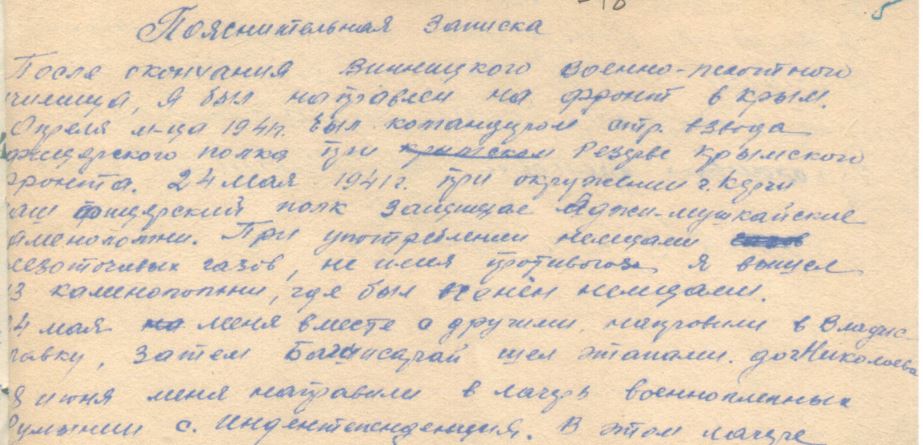 -18
5
Пояснительная записка
После окончания Винницкого военно-пехотного
училища, я был направлен на фронт в Крым.
Апреля м-ца 1941г. был командиром стр. взвода
фицерского полка при крымском Резерве Крымского
фронта. 24 мая 1941г. при окружении г. Керчи
наш фицерский полк защищае Аджи-мушкайские
каменоломни. При употреблении немцами
слезоточивых газов, не имея противогоза я вышел
из каменоломни, где был пленён немцами.
24 мая на меня вместе с другими направили в Владис-
лавку, затем Бахчисарай шел этапами до г Николаева
я июня меня направили в лагерь военнопленных
Румынии с. Индепенденция. В этом лагере